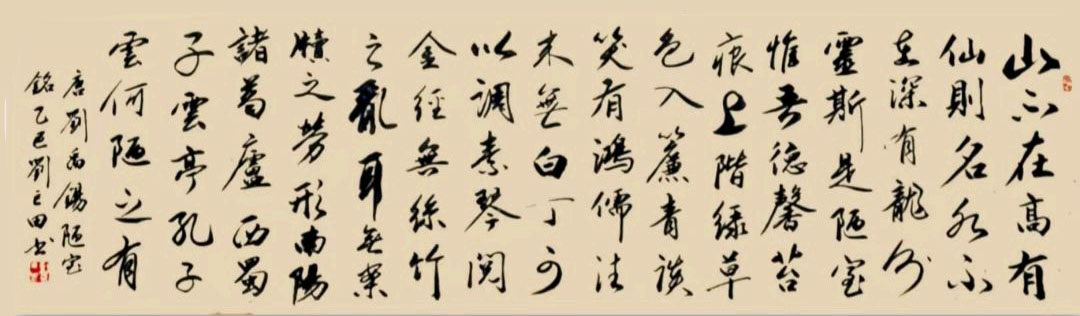 山不在高有
仙則名水不
在深有龍則
靈斯是陋室
惟吾德馨苔
痕上階緑草
色入簾青談
笑有鴻儒往
来無白丁可
以調素琴閲
金經無絲竹
之亂耳無案
牘之勞形南陽
諸葛廬西蜀
子雲亭孔子
雲何陋之有
唐劉禹錫陋室
銘乙巳劉田书